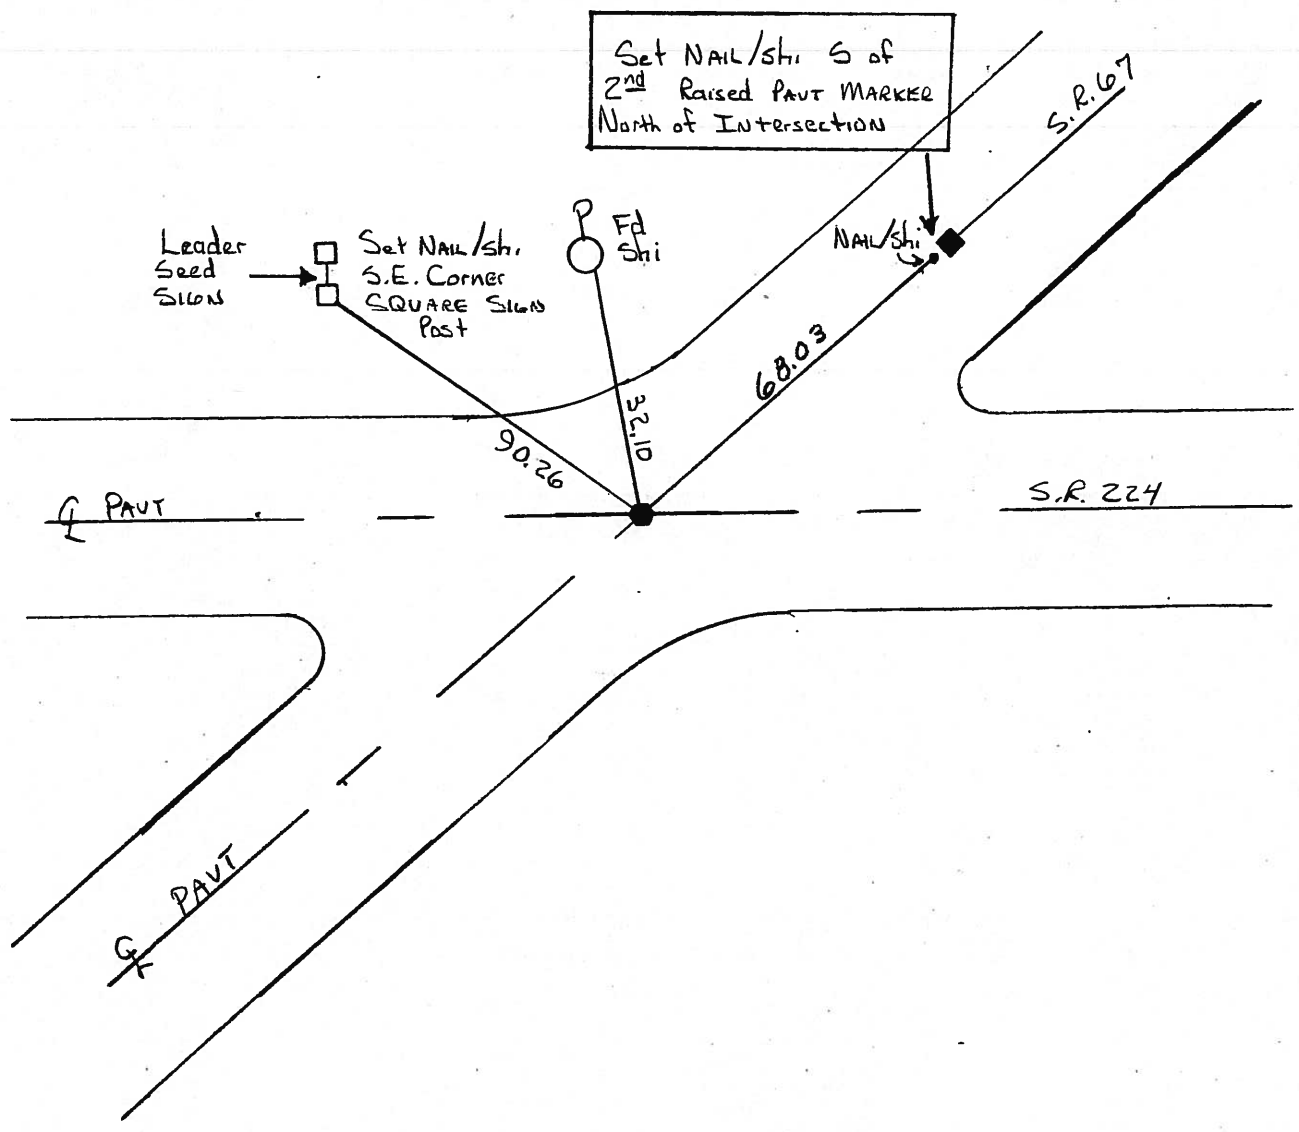 Set NAIL/Shi S of
2nd Raised PAVT MARKER
North of INtersectION
S.R. 67
P
Fd
Shi
NAIL/Shi
Leader
Seed
SIGN
Set NAIL/Shi
S.E. Corner
SQUARE SIGN
Post
68.03
32.10
90.26
℄ PAVT
S.R. 224
℄ PAVT